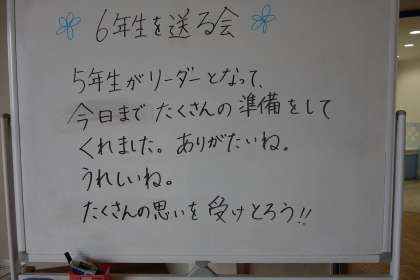 6年生を送る会
5年生がリーダーとなって、
今日まで たくさんの準備をして
くれました。ありがたいね。
うれしいね。
たくさんの思いを受けとろう!!